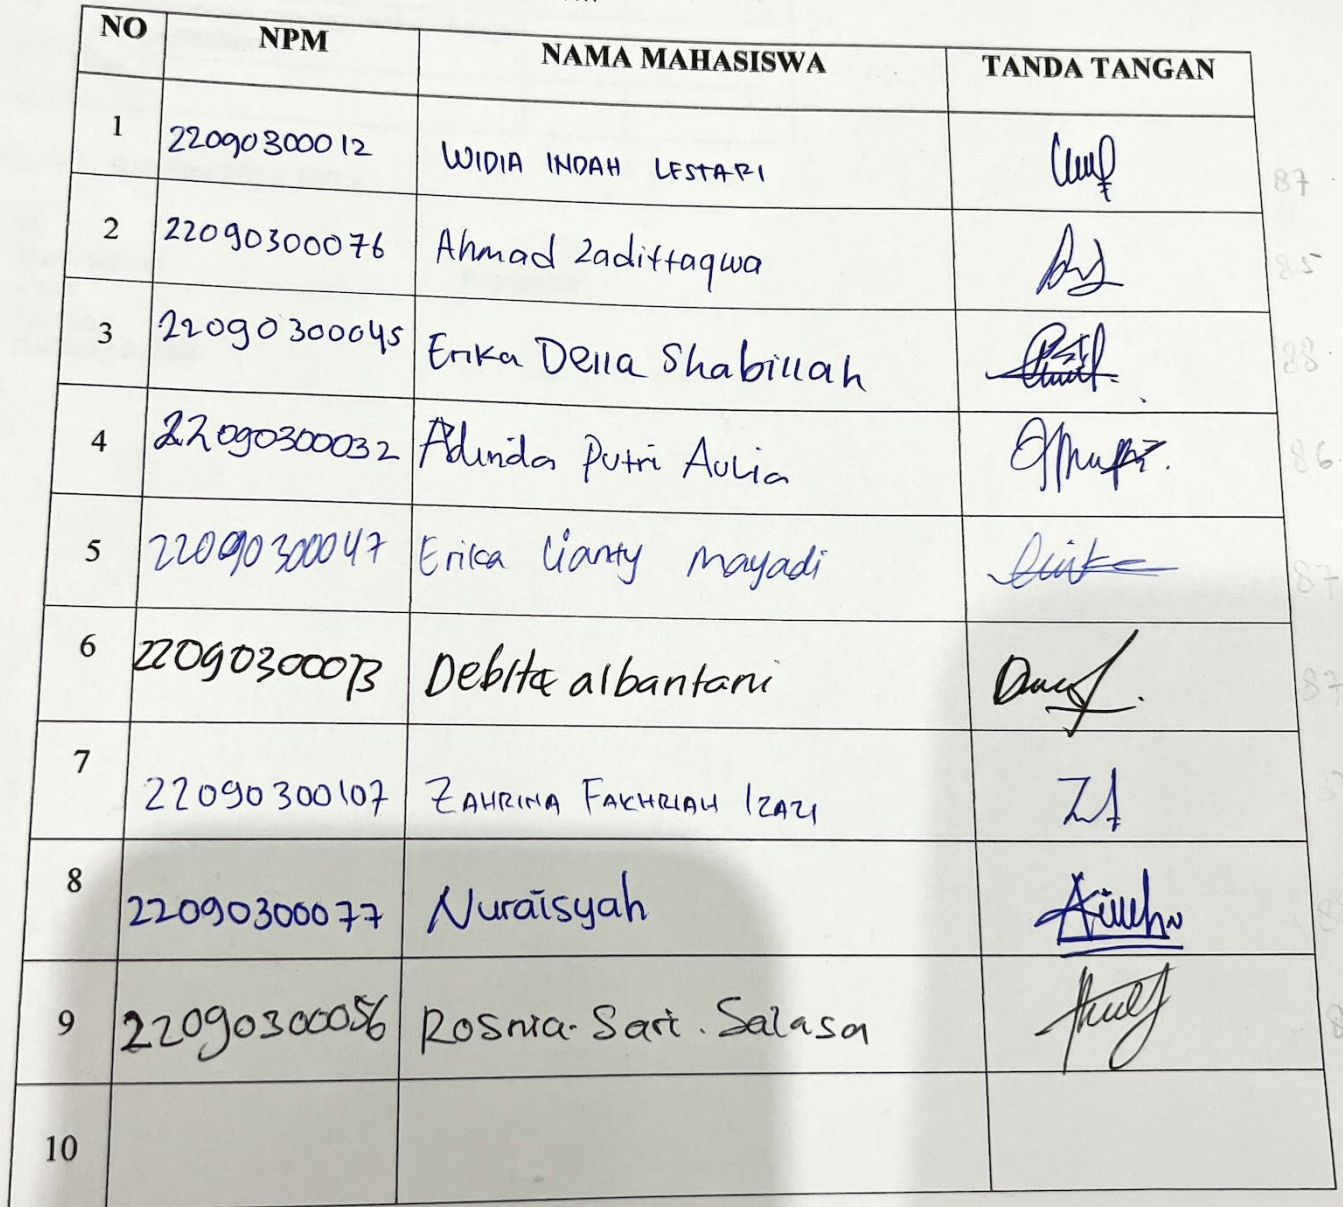 NO NPM NAMA MAHASISWA TANDA TANGAN
1 22090300012 WIDIA INDAH LESTARI 87
2 22090300076 Ahmad Zadittaqwa 85
3 22090300045 Erika Della Shabillah 88
4 22090300032 Adinda Putri Aulia 86
5 22090300047 Erika Lianty Mayadi 87
6 22090300073 Debita albantani 87
7 22090300107 ZAHRINA FAKHRIAH IZAZI
8 22090300077 Nuraisyah
9 22090300056 Rosnia. Sari. Salasa
10